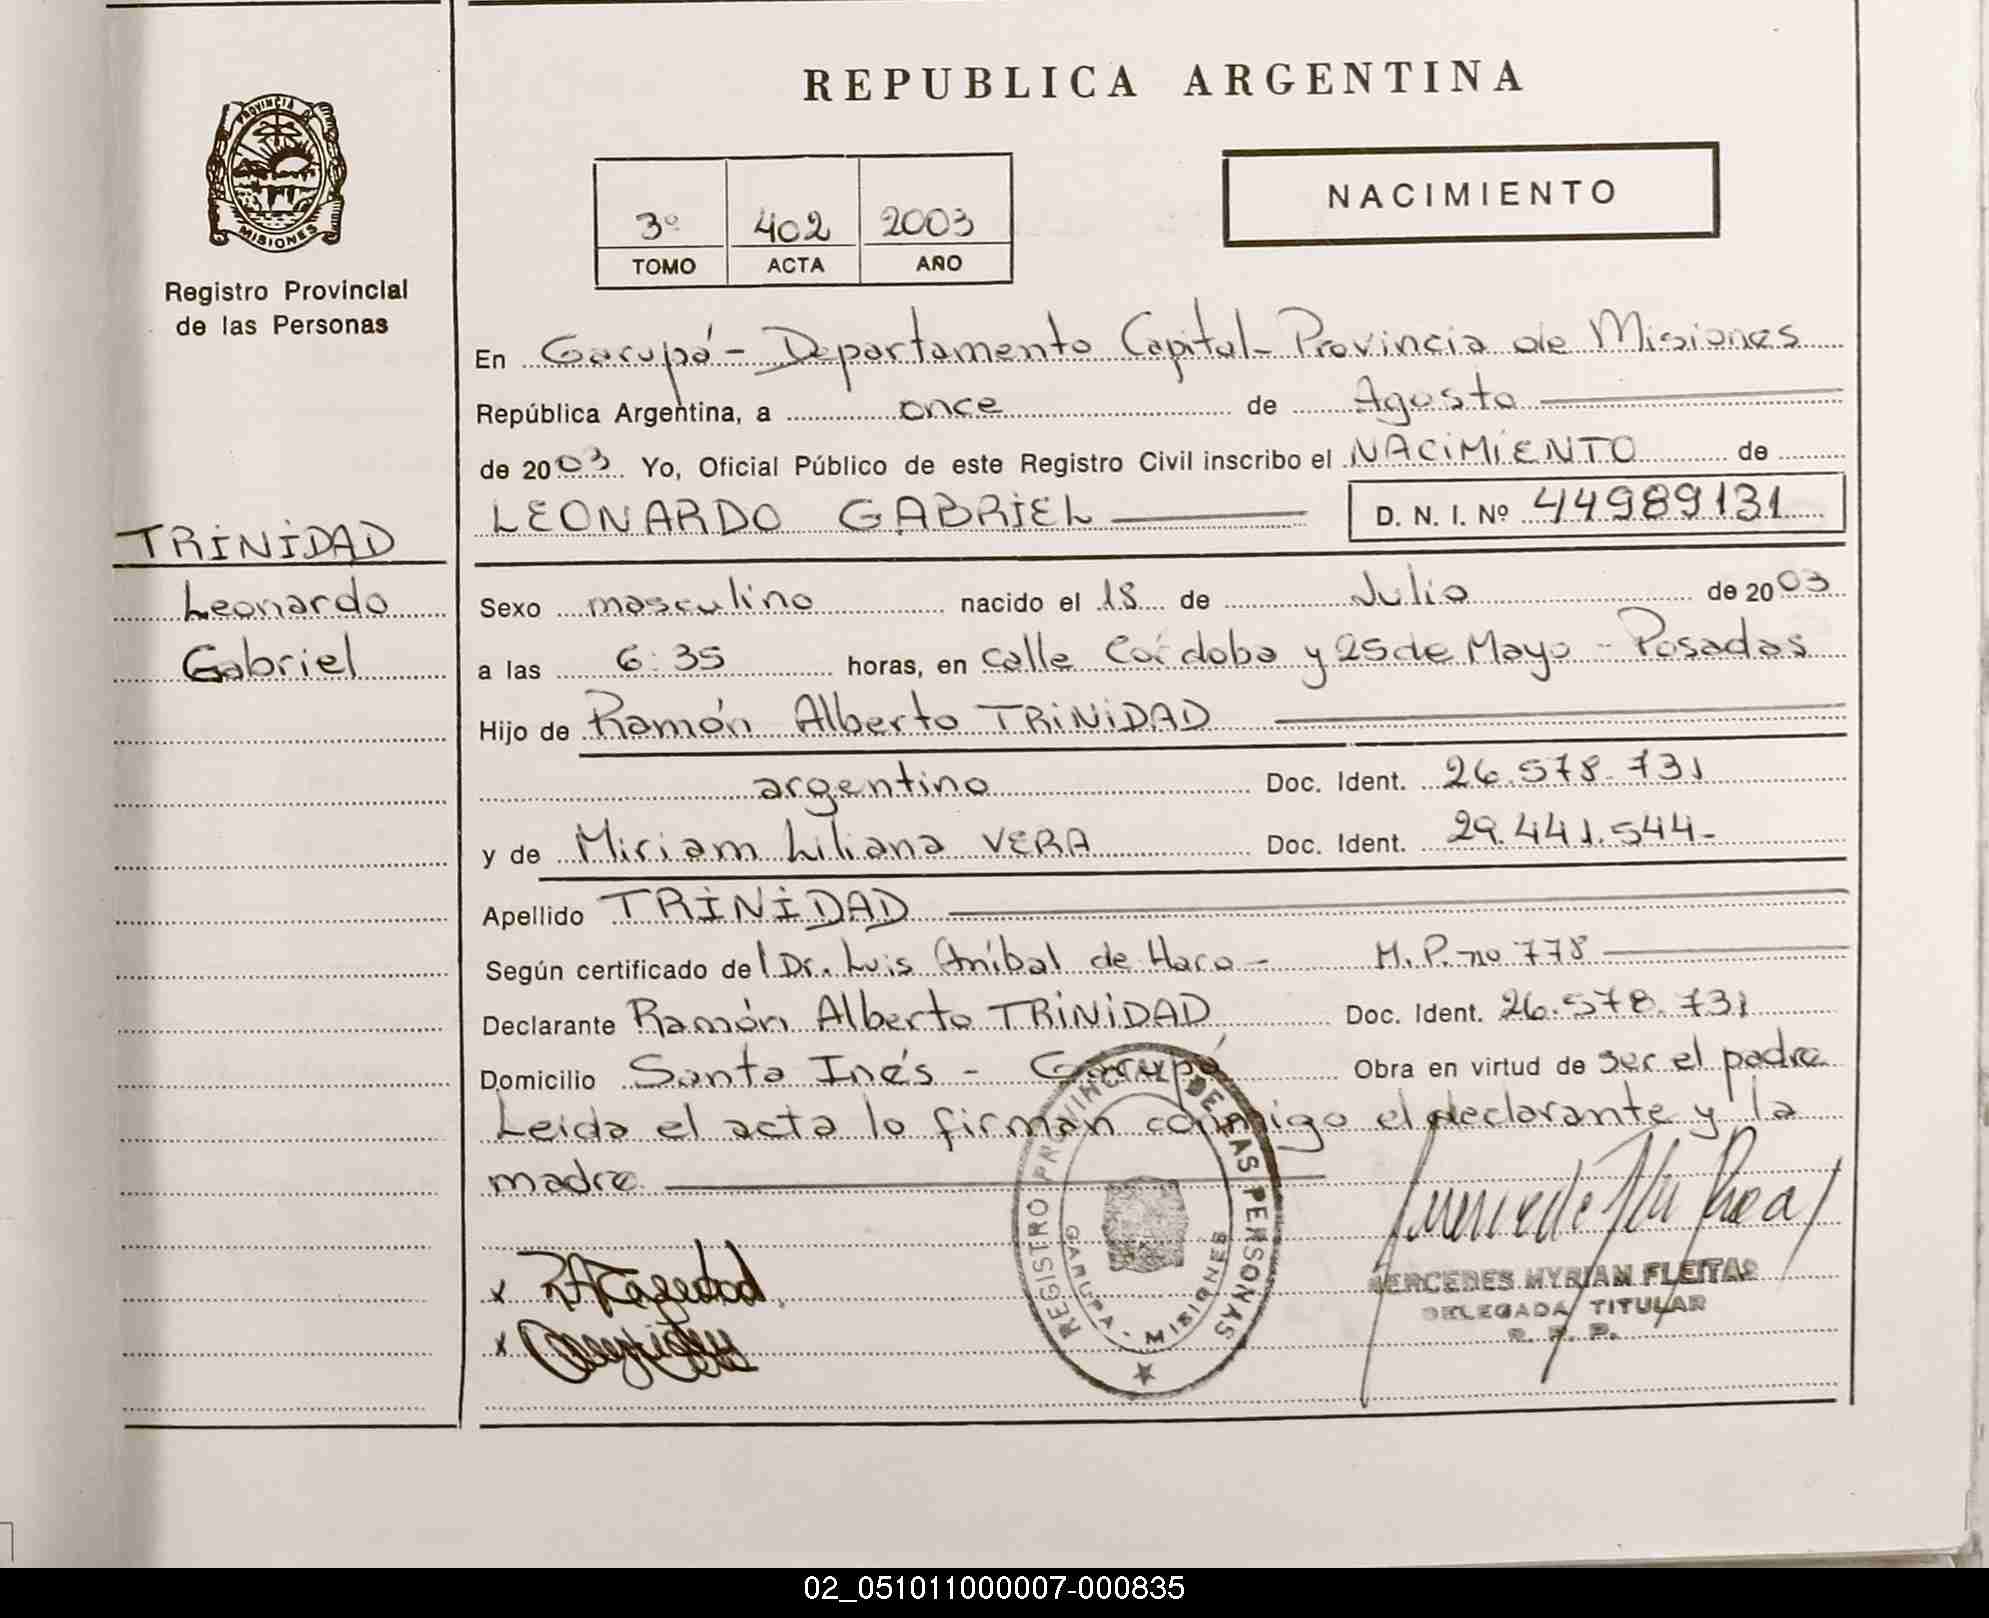 REPUBLICA ARGENTINA
PROVINCIA DE
MISIONES
Registro Provincial
de las Personas
NACIMIENTO
3º 402 2003
TOMO ACTA AÑO
En Garupá - Departamento Capital - Provincia de Misiones
República Argentina, a once de Agosto
de 2003 Yo, Oficial Público de este Registro Civil inscribo el NACIMIENTO de
LEONARDO GABRIEL D. N. I. Nº 44989131
TRINIDAD
Leonardo
Gabriel
Sexo masculino nacido el 18 de Julio de 2003
a las 6:35 horas, en calle Córdoba y 25 de Mayo - Posadas
Hijo de Ramón Alberto TRINIDAD
argentino Doc. Ident. 26.578.731
y de Miriam Liliana VERA Doc. Ident. 29.441.544-
Apellido TRINIDAD
Según certificado del Dr. Luis Aníbal de Haro - M.P. no 778
Declarante Ramón Alberto TRINIDAD Doc. Ident. 26.578.731
Domicilio Santa Inés - Garupá Obra en virtud de ser el padre
Leida el acta lo firman conmigo el declarante y la
madre
REGISTRO PROVINCIAL DE LAS PERSONAS
GARUPA - MISIONES
MERCEDES MYRIAM FLEITAS
DELEGADA TITULAR
R. P. P.
02_051011000007-000835